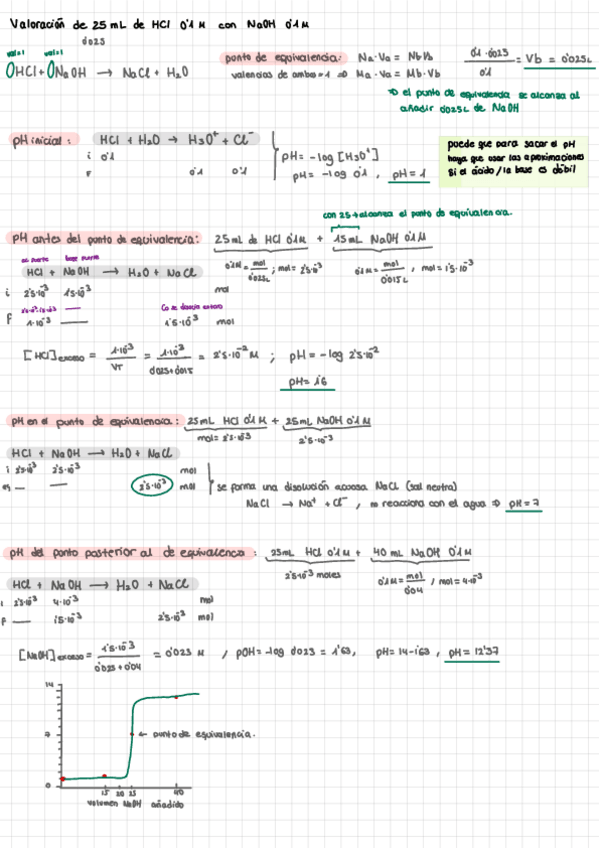 Valoración de 25 mL de HCl 0'1 M con NaOH 0'1 M
0'025
val=1 val=1
HCl + NaOH → NaCl + H₂O
punto de equivalencia: Na·Va = NbVb
valencias de ambos = 1 ⇒ Ma·Va = Mb·Vb
0'1·0'025 / 0'1 = Vb = 0'025L
⇒ el punto de equivalencia se alcanza al
añadir 0'025L de NaOH
pH inicial: HCl + H₂O → H₃O⁺ + Cl⁻
i 0'1
F 0'1 0'1
pH = -log [H₃O⁺]
pH = -log 0'1, pH = 1
puede que para sacar el pH
haya que usar las aproximaciones
si el ácido/la base es débil
con 25 + alcanza el punto de equivalencia.
pH antes del punto de equivalencia: 25 mL de HCl 0'1M + 15 mL NaOH 0'1M
0'1M = mol / 0'025L ; mol = 2'5·10⁻³
0'1M = mol / 0'015L , mol = 1'5·10⁻³
HCl + NaOH → H₂O + NaCl
i 2'5·10⁻³ 1'5·10⁻³ mol
F 1·10⁻³ — 1'5·10⁻³ mol
[HCl] exceso = 1·10⁻³ / VT = 1·10⁻³ / 0'025+0'015 = 2'5·10⁻² M ; pH = -log 2'5·10⁻²
pH = 1'6
pH en el punto de equivalencia: 25 mL HCl 0'1M + 25 mL NaOH 0'1M
mol = 2'5·10⁻³ 2'5·10⁻³
HCl + NaOH → H₂O + NaCl
i 2'5·10⁻³ 2'5·10⁻³ mol
— — 2'5·10⁻³ mol
se forma una disolución acuosa NaCl (sal neutra)
NaCl → Na⁺ + Cl⁻, no reacciona con el agua ⇒ pH = 7
pH del punto posterior al de equivalencia: 25mL HCl 0'1M + 40 mL NaOH 0'1M
2'5·10⁻³ moles
0'1M = mol / 0'04 / mol = 4·10⁻³
HCl + NaOH → H₂O + NaCl
i 2'5·10⁻³ 4·10⁻³ mol
F — 1'5·10⁻³ 2'5·10⁻³ mol
[NaOH] exceso = 1'5·10⁻³ / 0'025 + 0'04 = 0'023 M , pOH = -log 0'023 = 1'63, pH = 14-1'63, pH = 12'37
14
7 ← punto de equivalencia.
0
15 20 25 40
volumen NaOH añadido